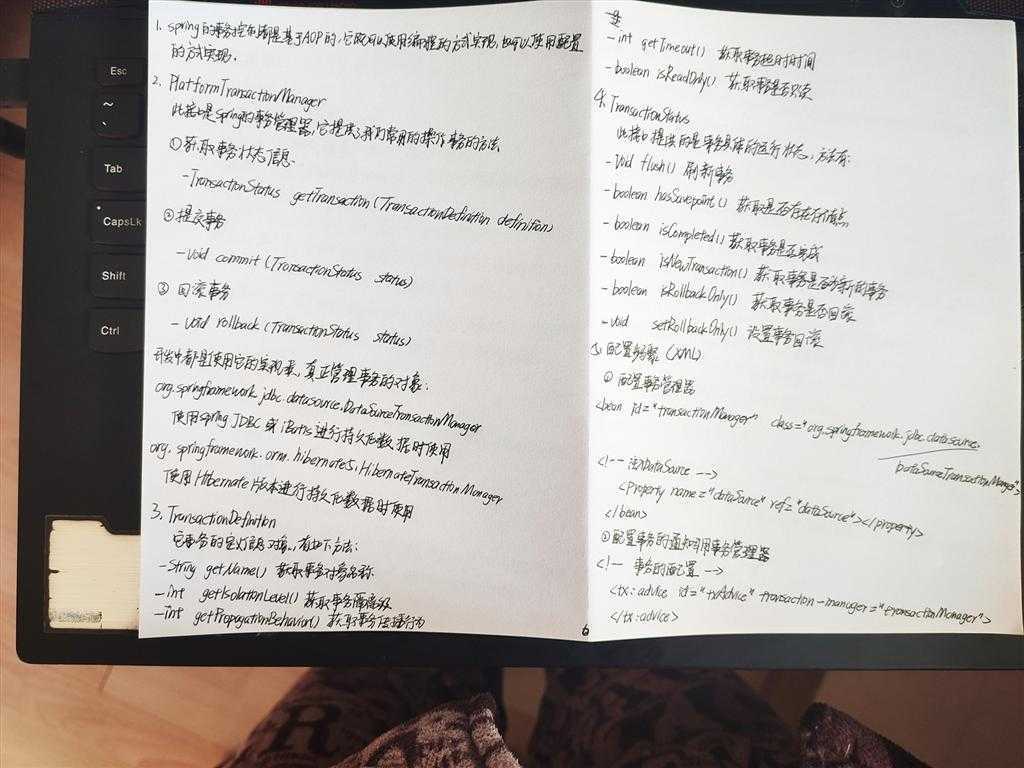 Esc
~
、
Tab
CapsLk
Shift
Ctrl
1. spring的事务控制都是基于AOP的,它既可以使用编程的方式实现,也可以使用配置
的方式实现.
2. PlatformTransactionManager
此接口是spring的事务管理器,它提供了我们常用的操作事务的方法
①获取事务状态信息.
-TransactionStatus getTransaction(TransactionDefinition definition)
②提交事务
-void commit(TransactionStatus status)
③ 回滚事务
- void rollback(TransactionStatus status)
开发中都是使用它的实现类,真正管理事务的对象:
org.springframework.jdbc.datasource.DataSourceTransactionManager
使用spring JDBC 或iBatis进行持久化数据时使用
org.springframework.orm.hibernate5.HibernateTransactionManager
使用Hibernate版本进行持久化数据时使用
3. TransactionDefinition
它事务的定义信息对象,有如下方法:
-String getName() 获取事务对象名称
-int getIsolationLevel() 获取事务隔离级
-int getPropogationBehavior() 获取事务传播行为
-int getTimeout() 获取事务超时时间
-boolean isReadOnly() 获取事务是否只读
4. TransactionStatus
此接口提供的是事务具体的运行状态,方法有:
-void flush() 刷新事务
-boolean hasSavepoint() 获取是否存在存储点
-boolean isCompleted() 获取事务是否完成
-boolean isNewTransaction() 获取事务是否为新的事务
-boolean isRollbackOnly() 获取事务是否回滚
-void setRollbackOnly() 设置事务回滚
配置步骤 (XML)
① 配置事务管理器
<bean id="transactionManager" class="org.springframework.jdbc.datasource.
DataSourceTransactionManager">
<!-- 注入DataSource -->
<property name="dataSource" ref="dataSource"></property>
</bean>
②配置事务的通知引用事务管理器
<!-- 事务的配置 -->
<tx:advice id="txAdvice" transaction-manager="transactionManager">
</tx:advice>
6